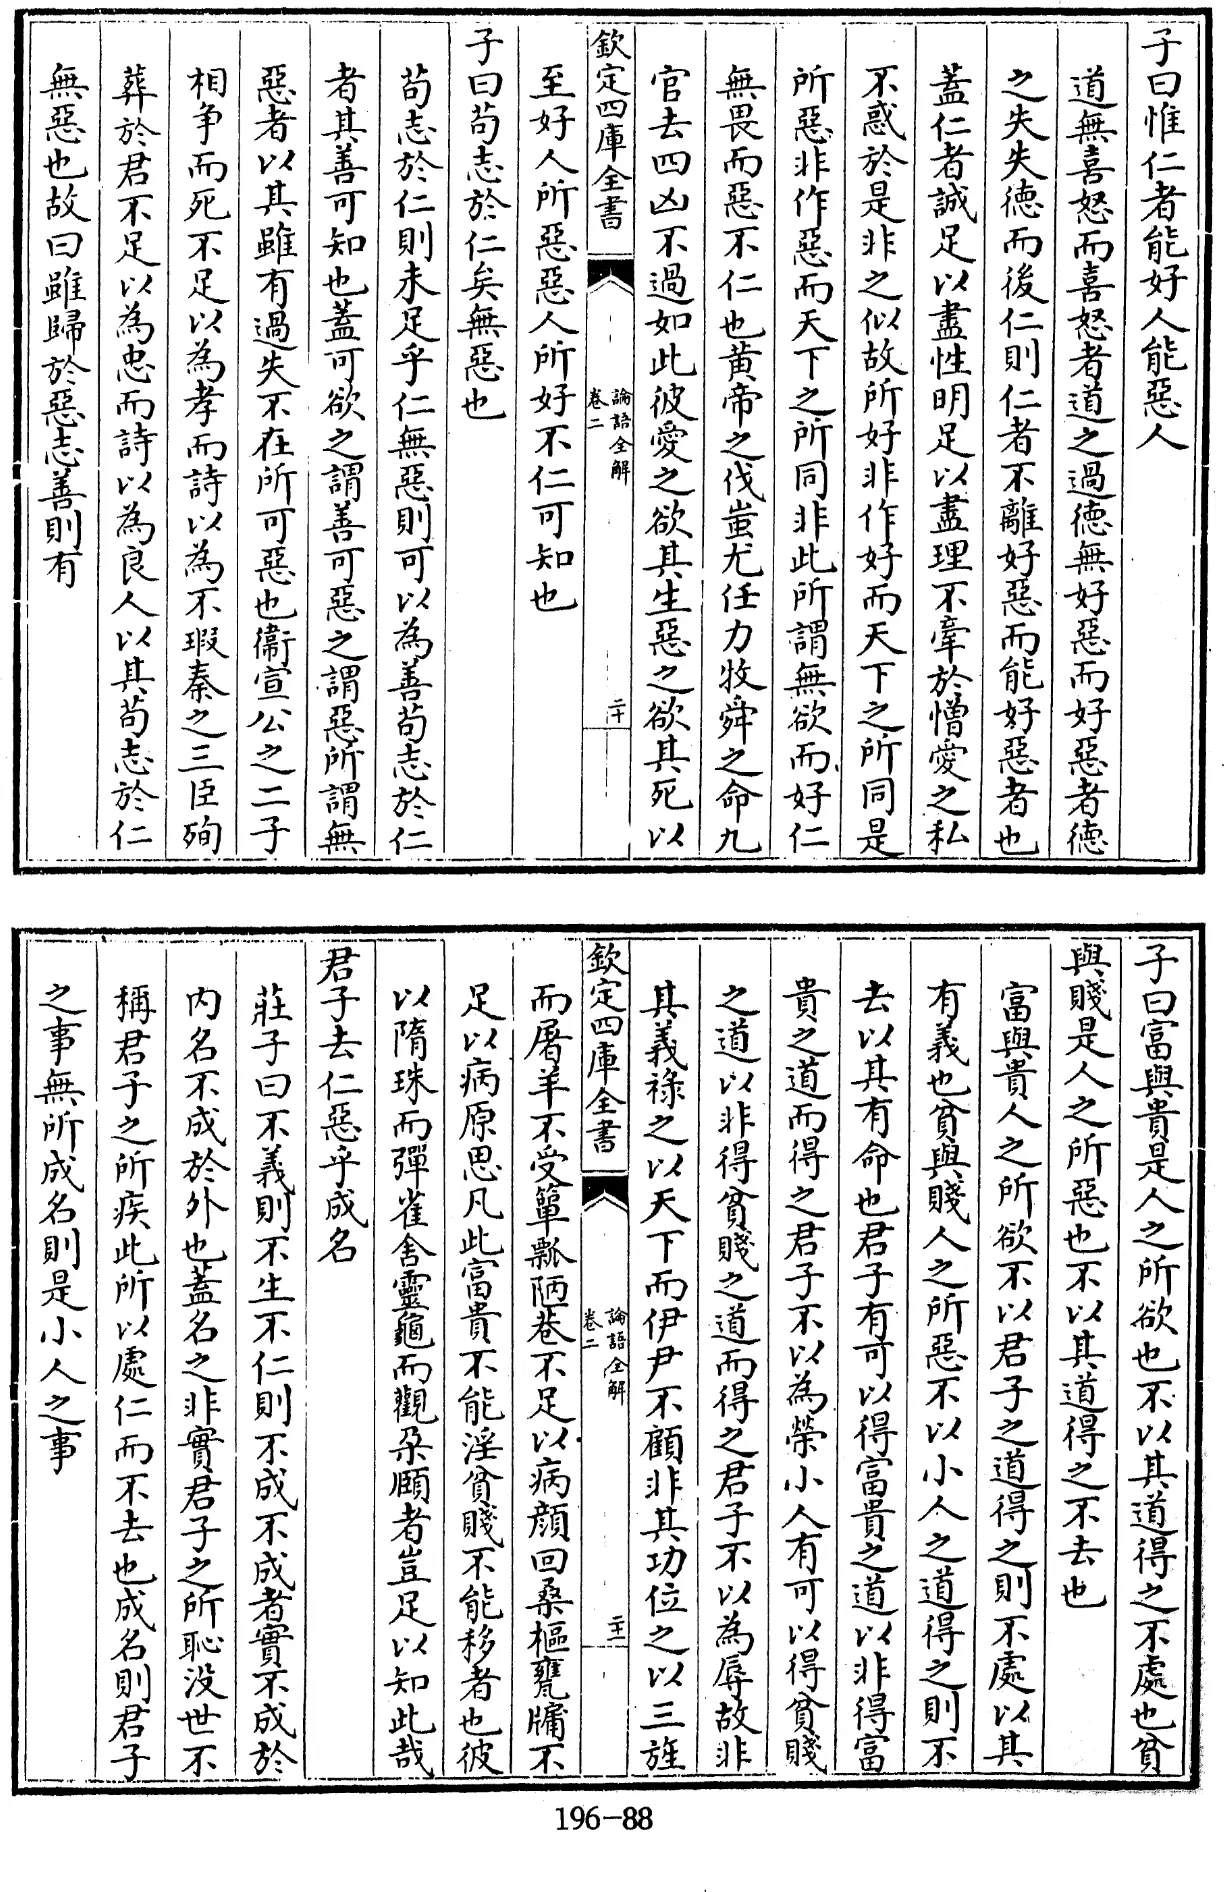 子曰惟仁者能好人能惡人
道無喜怒而喜怒者道之過德無好惡而好惡者德
之失失德而後仁則仁者不離好惡而能好惡者也
蓋仁者誠足以盡性明足以盡理不牽於憎愛之私
不惑於是非之似故所好非作好而天下之所同是
所惡非作惡而天下之所同非此所謂無欲而好仁
無畏而惡不仁也黄帝之伐蚩尤任力牧舜之命九
官去四凶不過如此彼愛之欲其生惡之欲其死以
欽定四庫全書
論語全解
卷二
二十
至好人所惡惡人所好不仁可知也
子曰苟志於仁矣無惡也
苟志於仁則未足乎仁無惡則可以為善苟志於仁
者其善可知也蓋可欲之謂善可惡之謂惡所謂無
惡者以其雖有過失不在所可惡也衞宣公之二子
相争而死不足以為孝而詩以為不瑕秦之三臣殉
葬於君不足以為忠而詩以為良人以其苟志於仁
無惡也故曰雖歸於惡志善則有
子曰富與貴是人之所欲也不以其道得之不處也貧
與賤是人之所惡也不以其道得之不去也
富與貴人之所欲不以君子之道得之則不處以其
有義也貧與賤人之所惡不以小人之道得之則不
去以其有命也君子有可以得富貴之道以非得富
貴之道而得之君子不以為榮小人有可以得貧賤
之道以非得貧賤之道而得之君子不以為辱故非
其義祿之以天下而伊尹不顧非其功位之以三旌
欽定四庫全書
論語全解
卷二
二十一
而屠羊不受簞瓢陋巷不足以病顔回桑樞甕牖不
足以病原思凡此富貴不能淫貧賤不能移者也彼
以隋珠而彈雀舍靈龜而觀朶頤者豈足以知此哉
君子去仁惡乎成名
莊子曰不義則不生不仁則不成不成者實不成於
内名不成於外也蓋名之非實君子之所恥没世不
稱君子之所疾此所以處仁而不去也成名則君子
之事無所成名則是小人之事
196-88